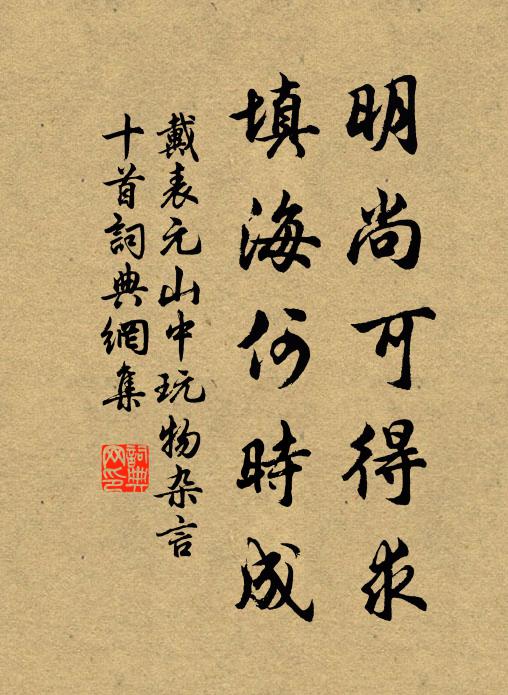 明尚可得求
填海何时成
戴表元山中玩物杂言
十首詞典網集
詞典
网印